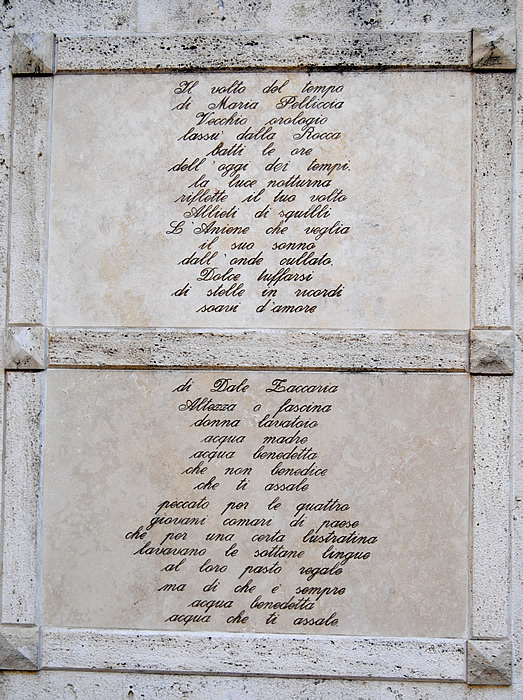 Il volto del tempo
di Maria Pelliccia
Vecchio orologio
lassù dalla Rocca
batti le ore
dell'oggi dei tempi.
la luce notturna
riflette il tuo volto
Allieti di squilli
L'Aniene che veglia
il suo sonno
dall'onde cullato.
Dolce tuffarsi
di stelle in ricordi
soavi d'amore
di Dale Zaccaria
Altezza o fascina
donna lavatoio
acqua madre
acqua benedetta
che non benedice
che ti assale
peccato per le quattro
giovani comari di paese
che per una certa lustratina
lavavano le sottane lingue
al loro pasto regale
ma di che è sempre
acqua benedetta
acqua che ti assale